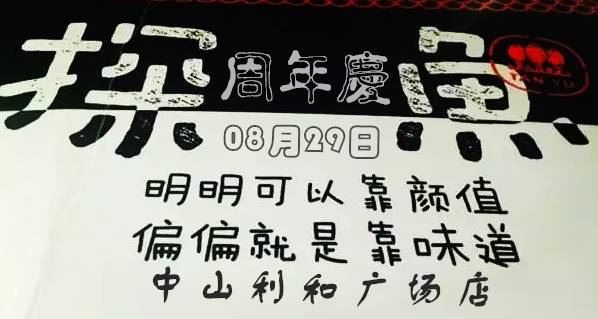 探鱼
周年慶
08月29日
TAN YU
明明可以靠颜值
偏偏就是靠味道
中山利和广场店